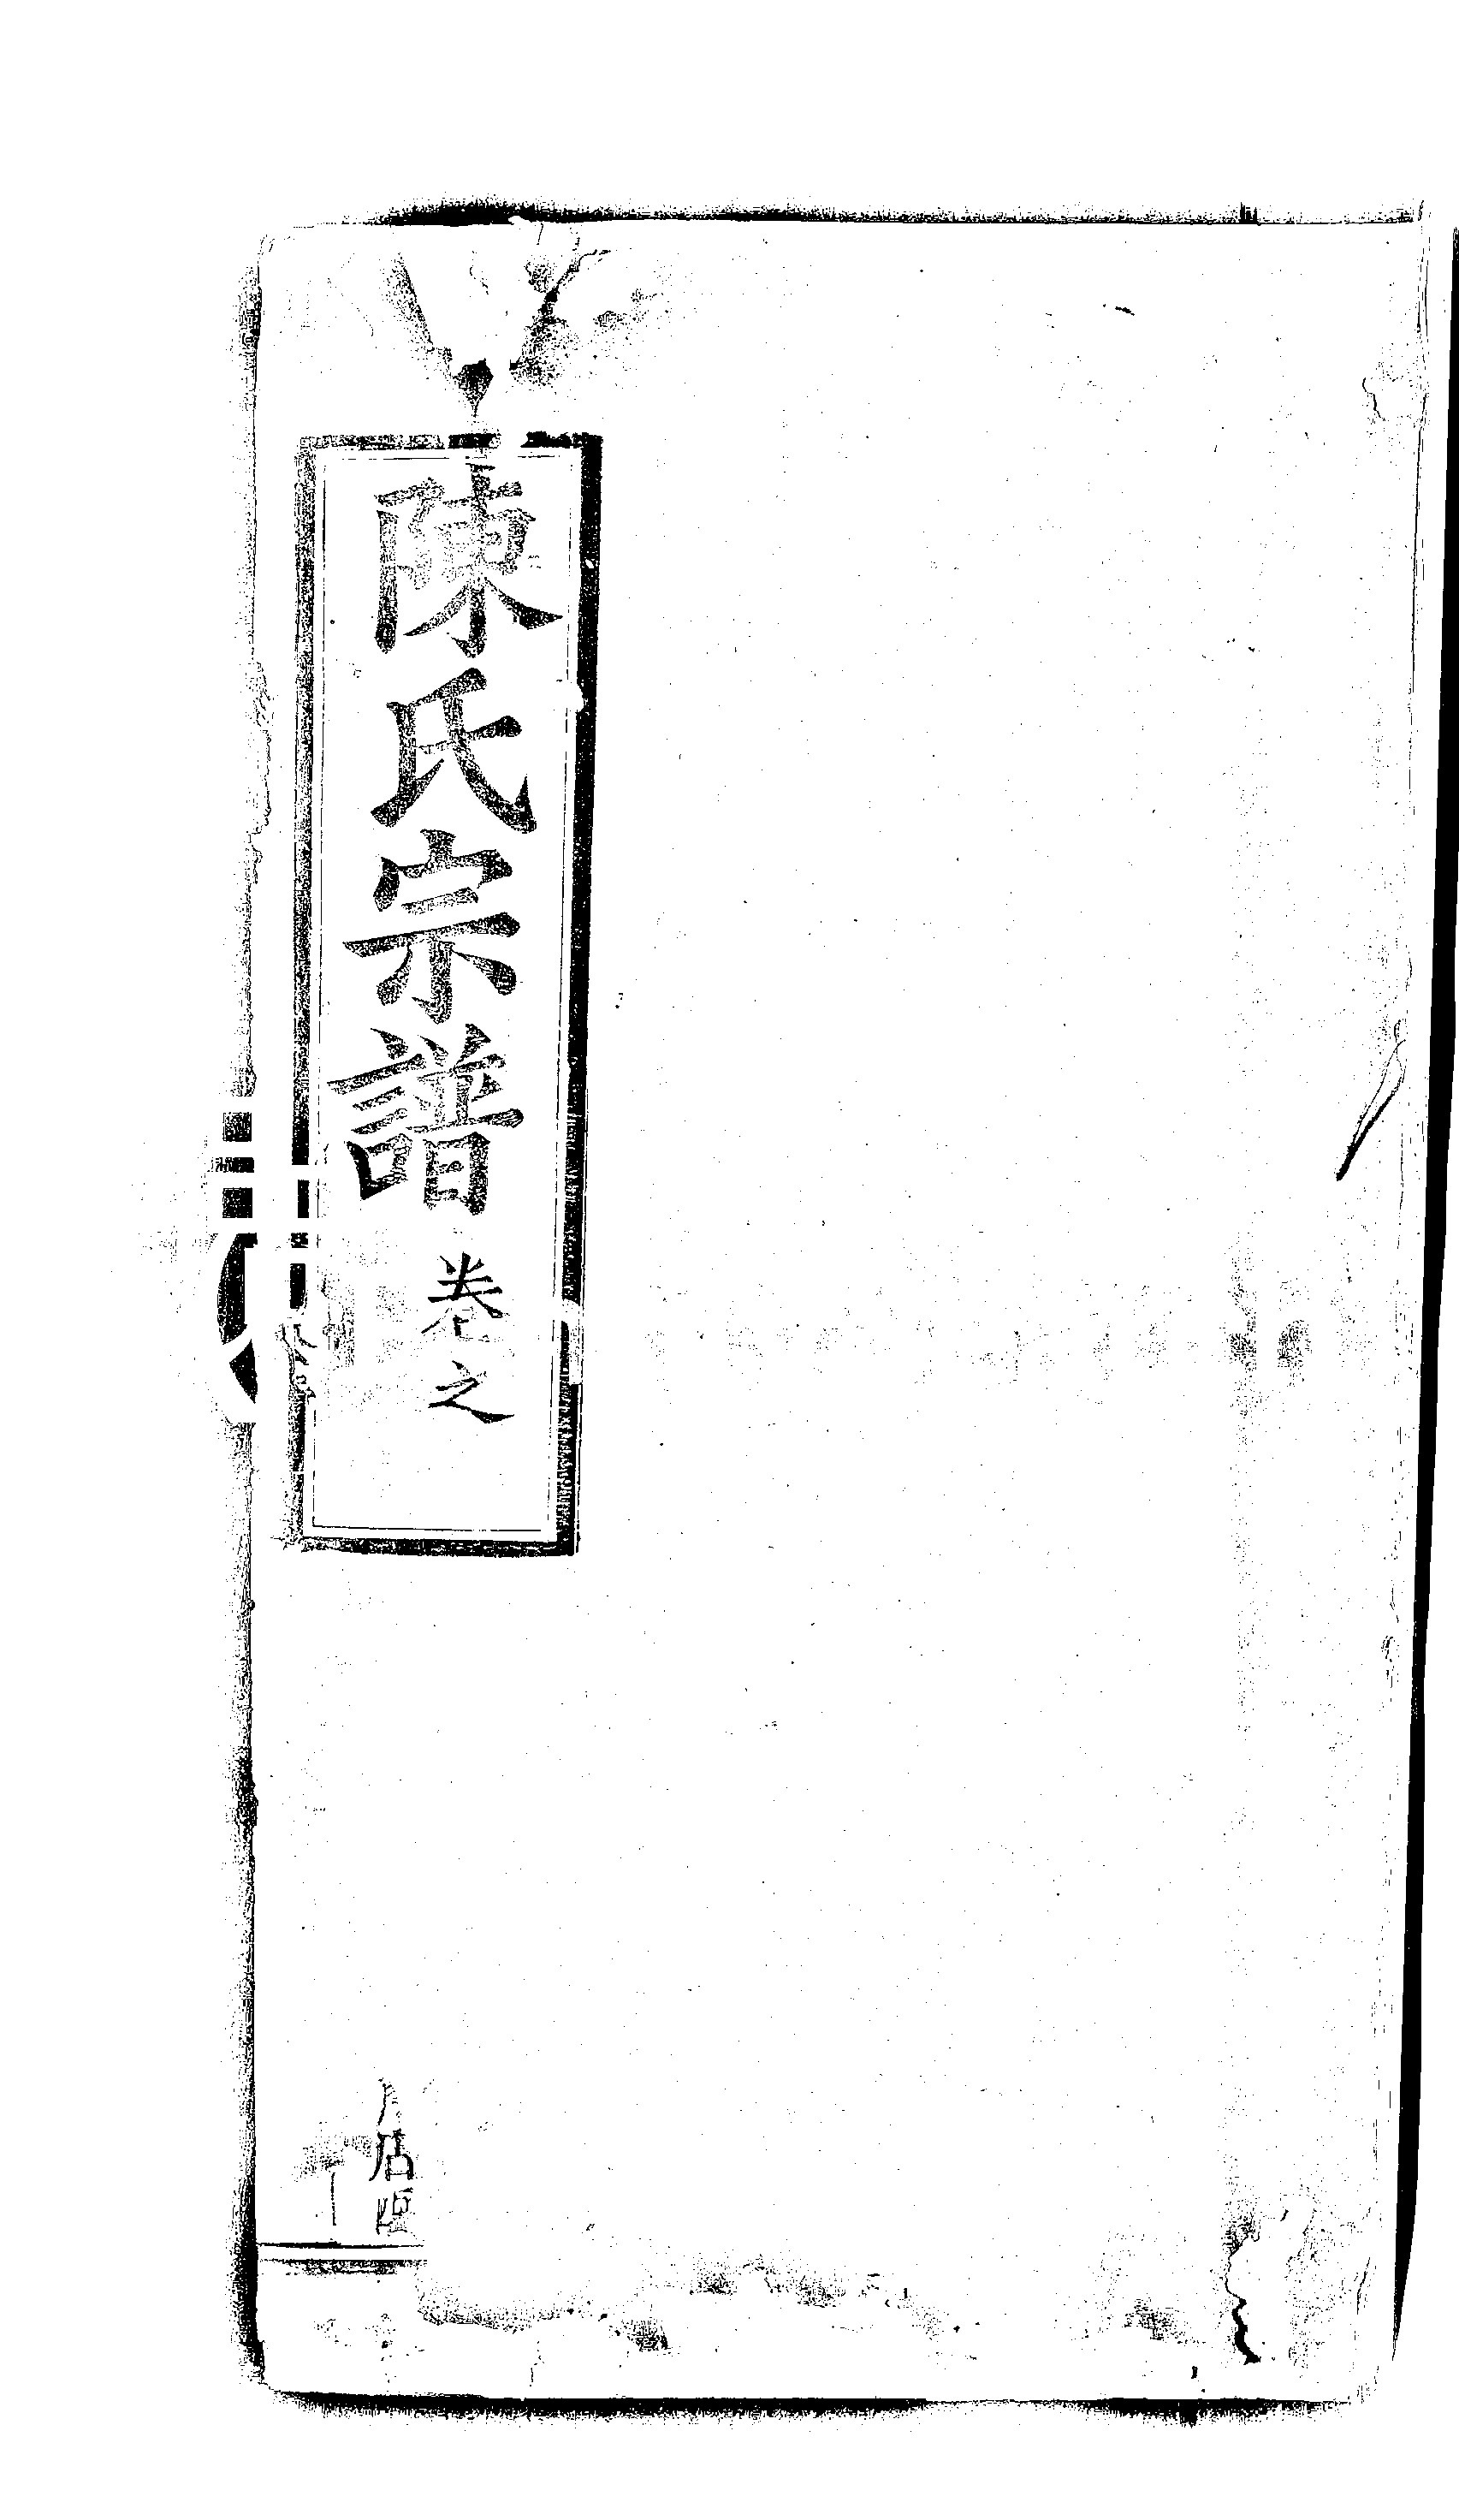 陳氏宗譜 卷之
店